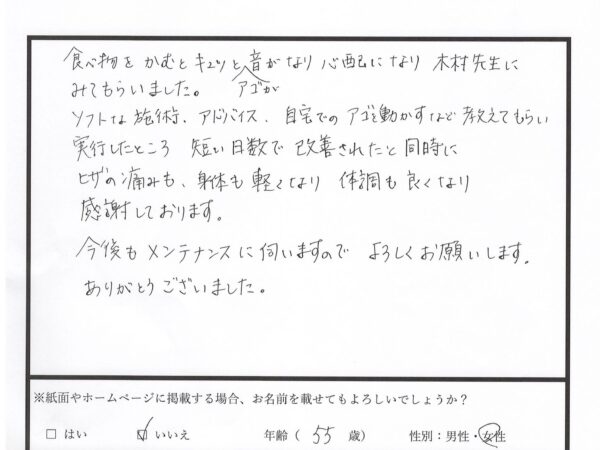 食べ物を かむと キュッと アゴが 音がなり 心配になり 木村先生に
みてもらいました。
ソフトな 施術、アドバイス、自宅での アゴを動かすなど 教えてもらい
実行したところ 短い日数で 改善されたと同時に
ヒザの痛みも、身体も 軽くなり 体調も 良くなり
感謝しております。
今後も メンテナンスに 伺いますので よろしくお願いします。
ありがとうございました。
※紙面やホームページに掲載する場合、お名前を載せてもよろしいでしょうか？
□ はい ☑ いいえ 年齢（ 55 歳） 性別：男性・女性